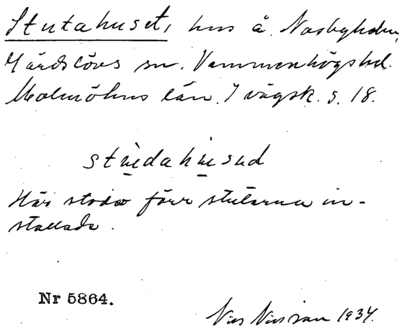 Stutahuset, hus å Näsbyholm,
Gärdslövs sn. Vemmenhögs hd.
Malmöhus län. I vägsk. s. 18.
stu̠dahu̠sad
Här stodo förr stutarna in-
stallade.
Nr 5864.
Nils Nilsson 1934.